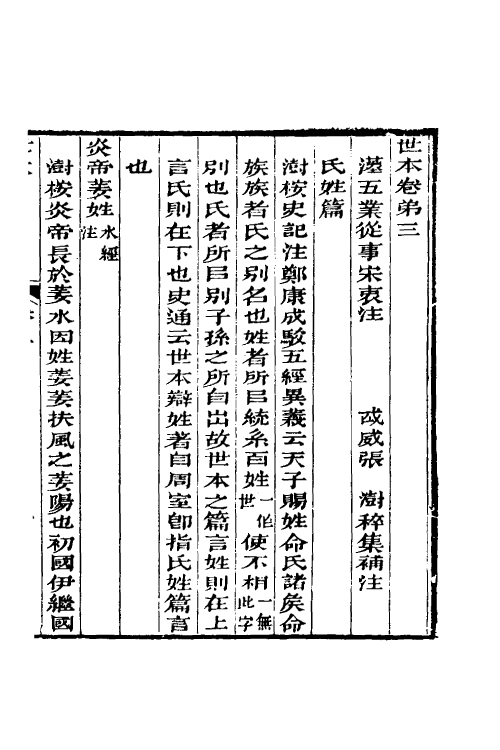 世本卷弟三
漢五業從事宋衷注 武威張 澍稡集補注
氏姓篇
澍桉史記注鄭康成駁五經異義云天子賜姓命氏諸矦命
族族者氏之別名也姓者所㠯統系百姓一作世使不相一無此字
別也氏者所㠯別子孫之所自出故世本之篇言姓則在上
言氏則在下也史通云世本辯姓著自周室卽指氏姓篇言
也
炎帝姜姓水經注
澍桉炎帝長於姜水因姓姜姜扶風之姜陽也初國伊繼國